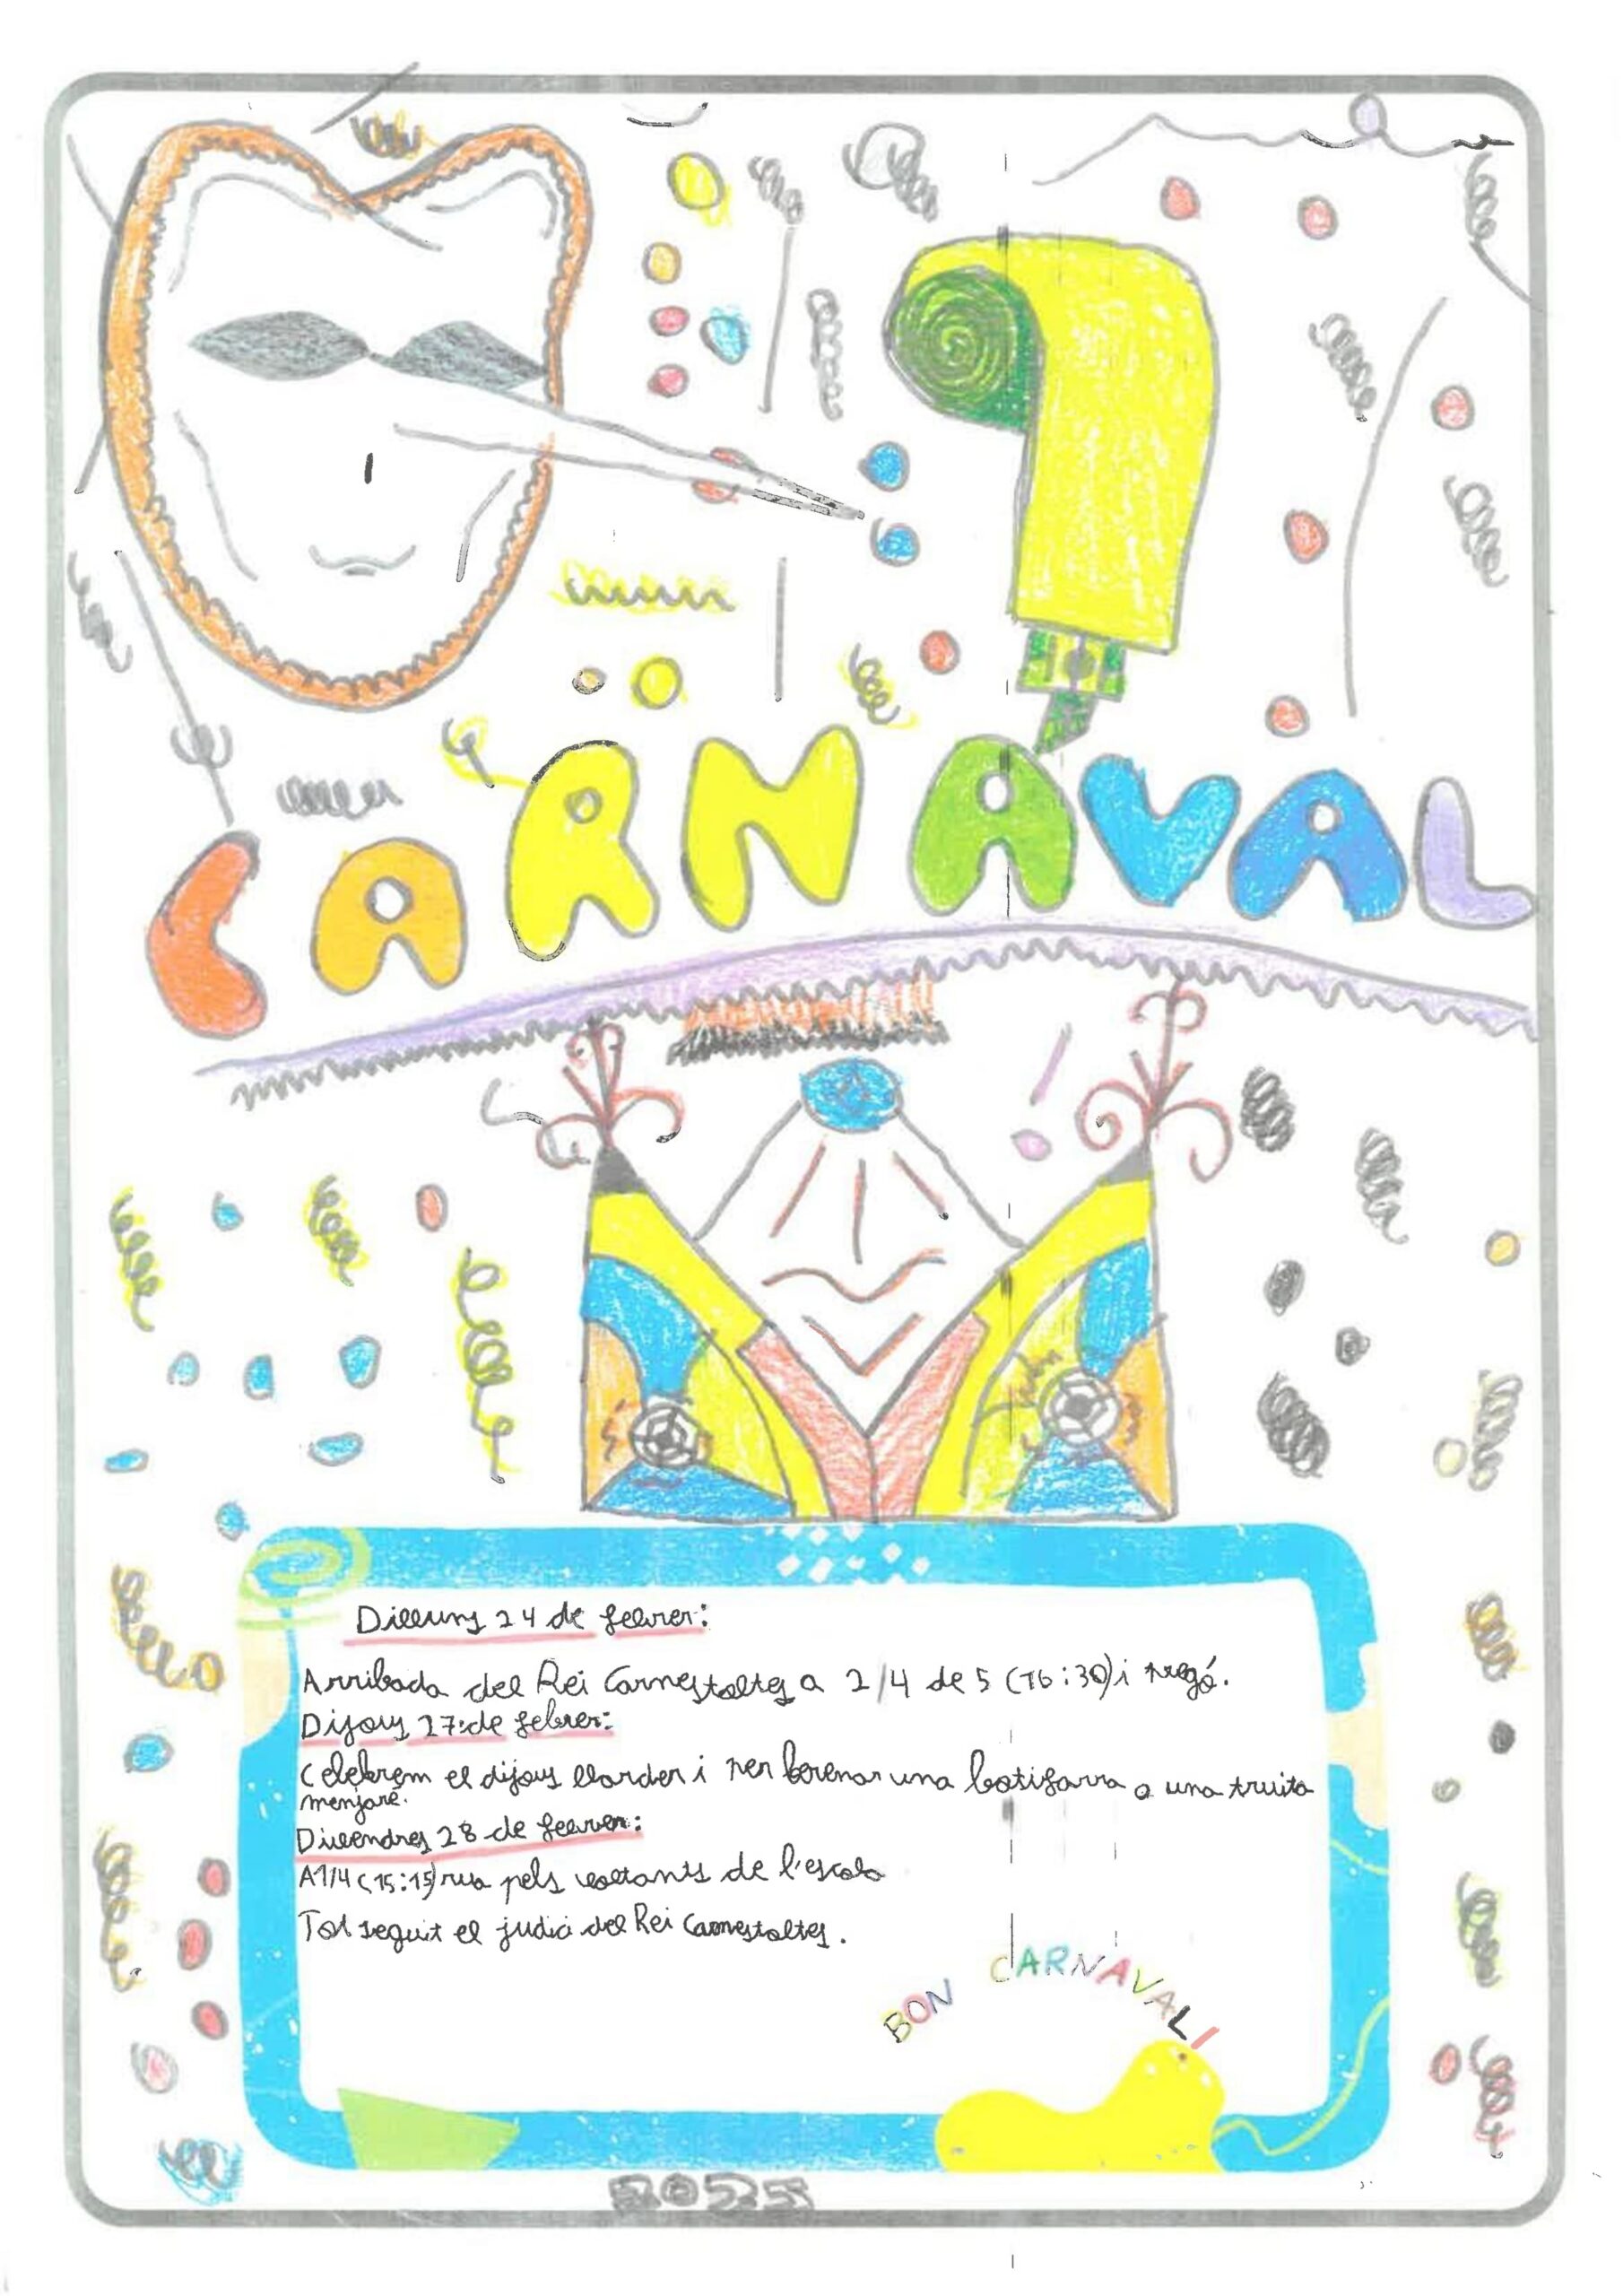 CARNAVAL
Dilluns 24 de febrer:
Arribada del Rei Carnestoltes a 2/4 de 5 (16:30) i pregó.
Dijous 27 de febrer:
Celebrem el dijous llarder i per berenar una botifarra o una truita
menjaré.
Divendres 28 de febrer:
A 1/4 (15:15) rua pels voltants de l'escola
Tot seguit el judici del Rei Carnestoltes.
BON CARNAVAL!
2025